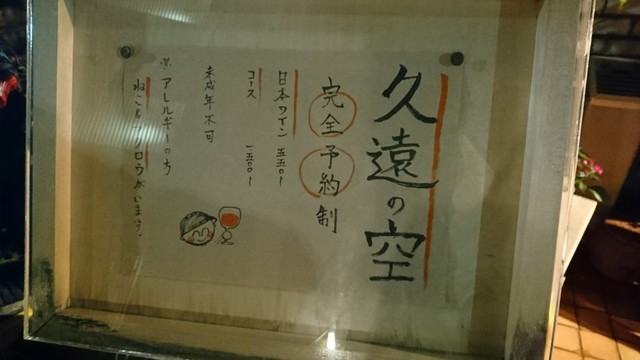 久遠の空
完全予約制
日本ワイン 五五〇〜
コース 一五〇〇〜
未成年不可
※アレルギーのち
ねこ フクロウがいます。